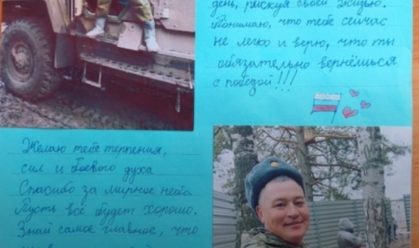 день, рискуя своей жизнью.
Понимаю, что тебе сейчас
не легко и верю, что ты
обязательно вернёшься
с победой!!!
Желаю тебе терпения,
сил и боевого духа
Спасибо за мирное небо.
Пусть всё будет хорошо.
Знай самое главное, что